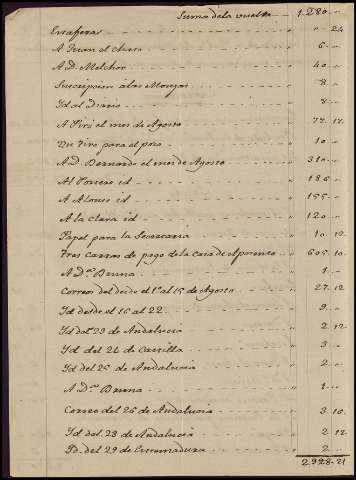 Suma de la vuelta 1.280 "
Estafetas " 24
A Juan el chico 6 "
A D. Melchor 40 "
Suscripcion a las Monjas 8 "
Id al Diario 8 "
A Piris el mes de Agosto 77. 17.
Un tiro para el pozo 10 "
A D. Bernardo el mes de Agosto 310 "
Al Portero id 186 "
A Alonso id 155 "
A la Clara id 120 "
Papel para la Secretaria 10 12
tres carros de pago de la casa de Aposento 605 10
A D.ª Bruna 1 "
Correos del desde el 1º al 15 de Agosto 27. 12
Id desde el 16 al 22 9 "
Id del 23 de Andalucia 2 12
Id del 24 de Castilla 3 "
Id del 25 de Andalucia 2 "
A D.ª Bruna 1 "
Correo del 26 de Andalucia 3 10
Id del 28 de Andalucia 2 12
Id. del 29 de Extremadura 2 "
2928. 21